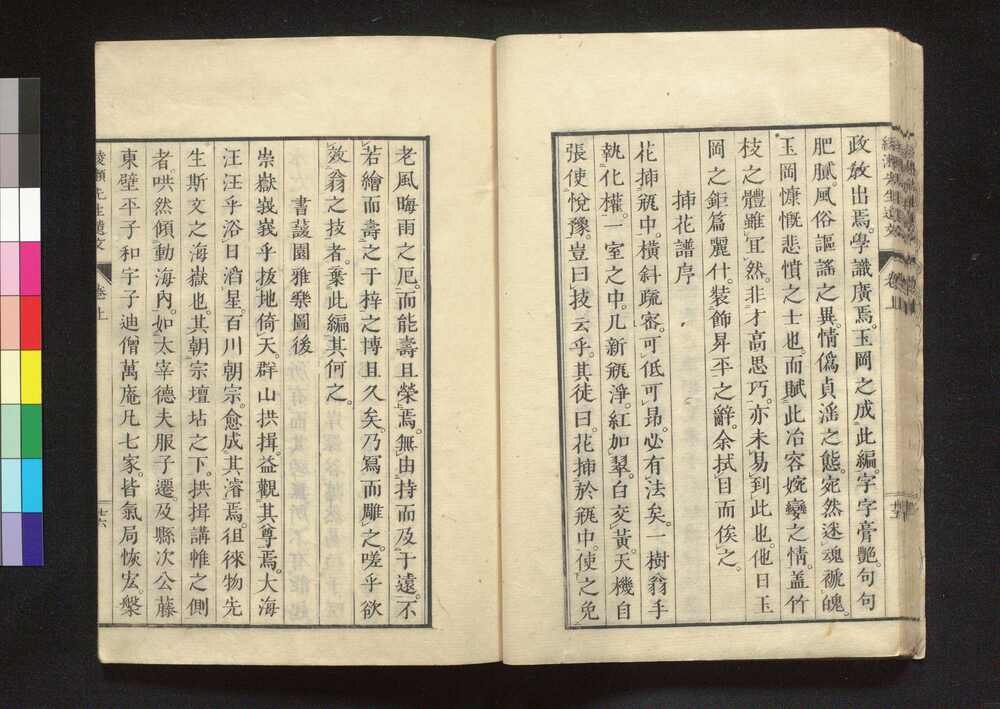 政敎出焉。學識廣焉。玉岡之成此編。字字膏艶。句句
肥膩。風俗謳謠之異。情僞貞淫之態。宛然迷魂褫魄。
玉岡慷慨悲憤之士也。而賦此冶容婉孌之情。蓋竹
枝之體雖宜然。非才高思巧。亦未易到此也。他日玉
岡之鉅篇麗什。裝飾昇平之辭。余拭目而俟之。
揷花譜序
花揷瓶中。橫斜疏密。可低可昻。必有法矣。一樹翁手
執化權。一室之中。几新瓶淨。紅加翠。白交黃。天機自
張使悅豫。豈曰技云乎。其徒曰。花揷於瓶中。使之免
老風晦雨之厄。而能壽且榮焉。無由持而及于遠。不
若繪而壽之于梓之博且久矣。乃寫而雕之。嗟乎欲
效翁之技者。棄此編其何之。
書蘐園雅樂圖後
崇嶽峩峩乎拔地倚天。群山拱揖。益觀其尊焉。大海
汪汪乎浴日滔星。百川朝宗。愈成其濬焉。徂徠物先
生斯文之海嶽也。其朝宗壇坫之下。拱揖講帷之側
者。哄然傾動海內。如太宰德夫服子遷。及縣次公藤
東壁平子和宇子迪僧萬庵凡七家。皆氣局恢宏。槃
綾瀨先生遺文
卷上
十六
綾瀨先生遺文
卷上